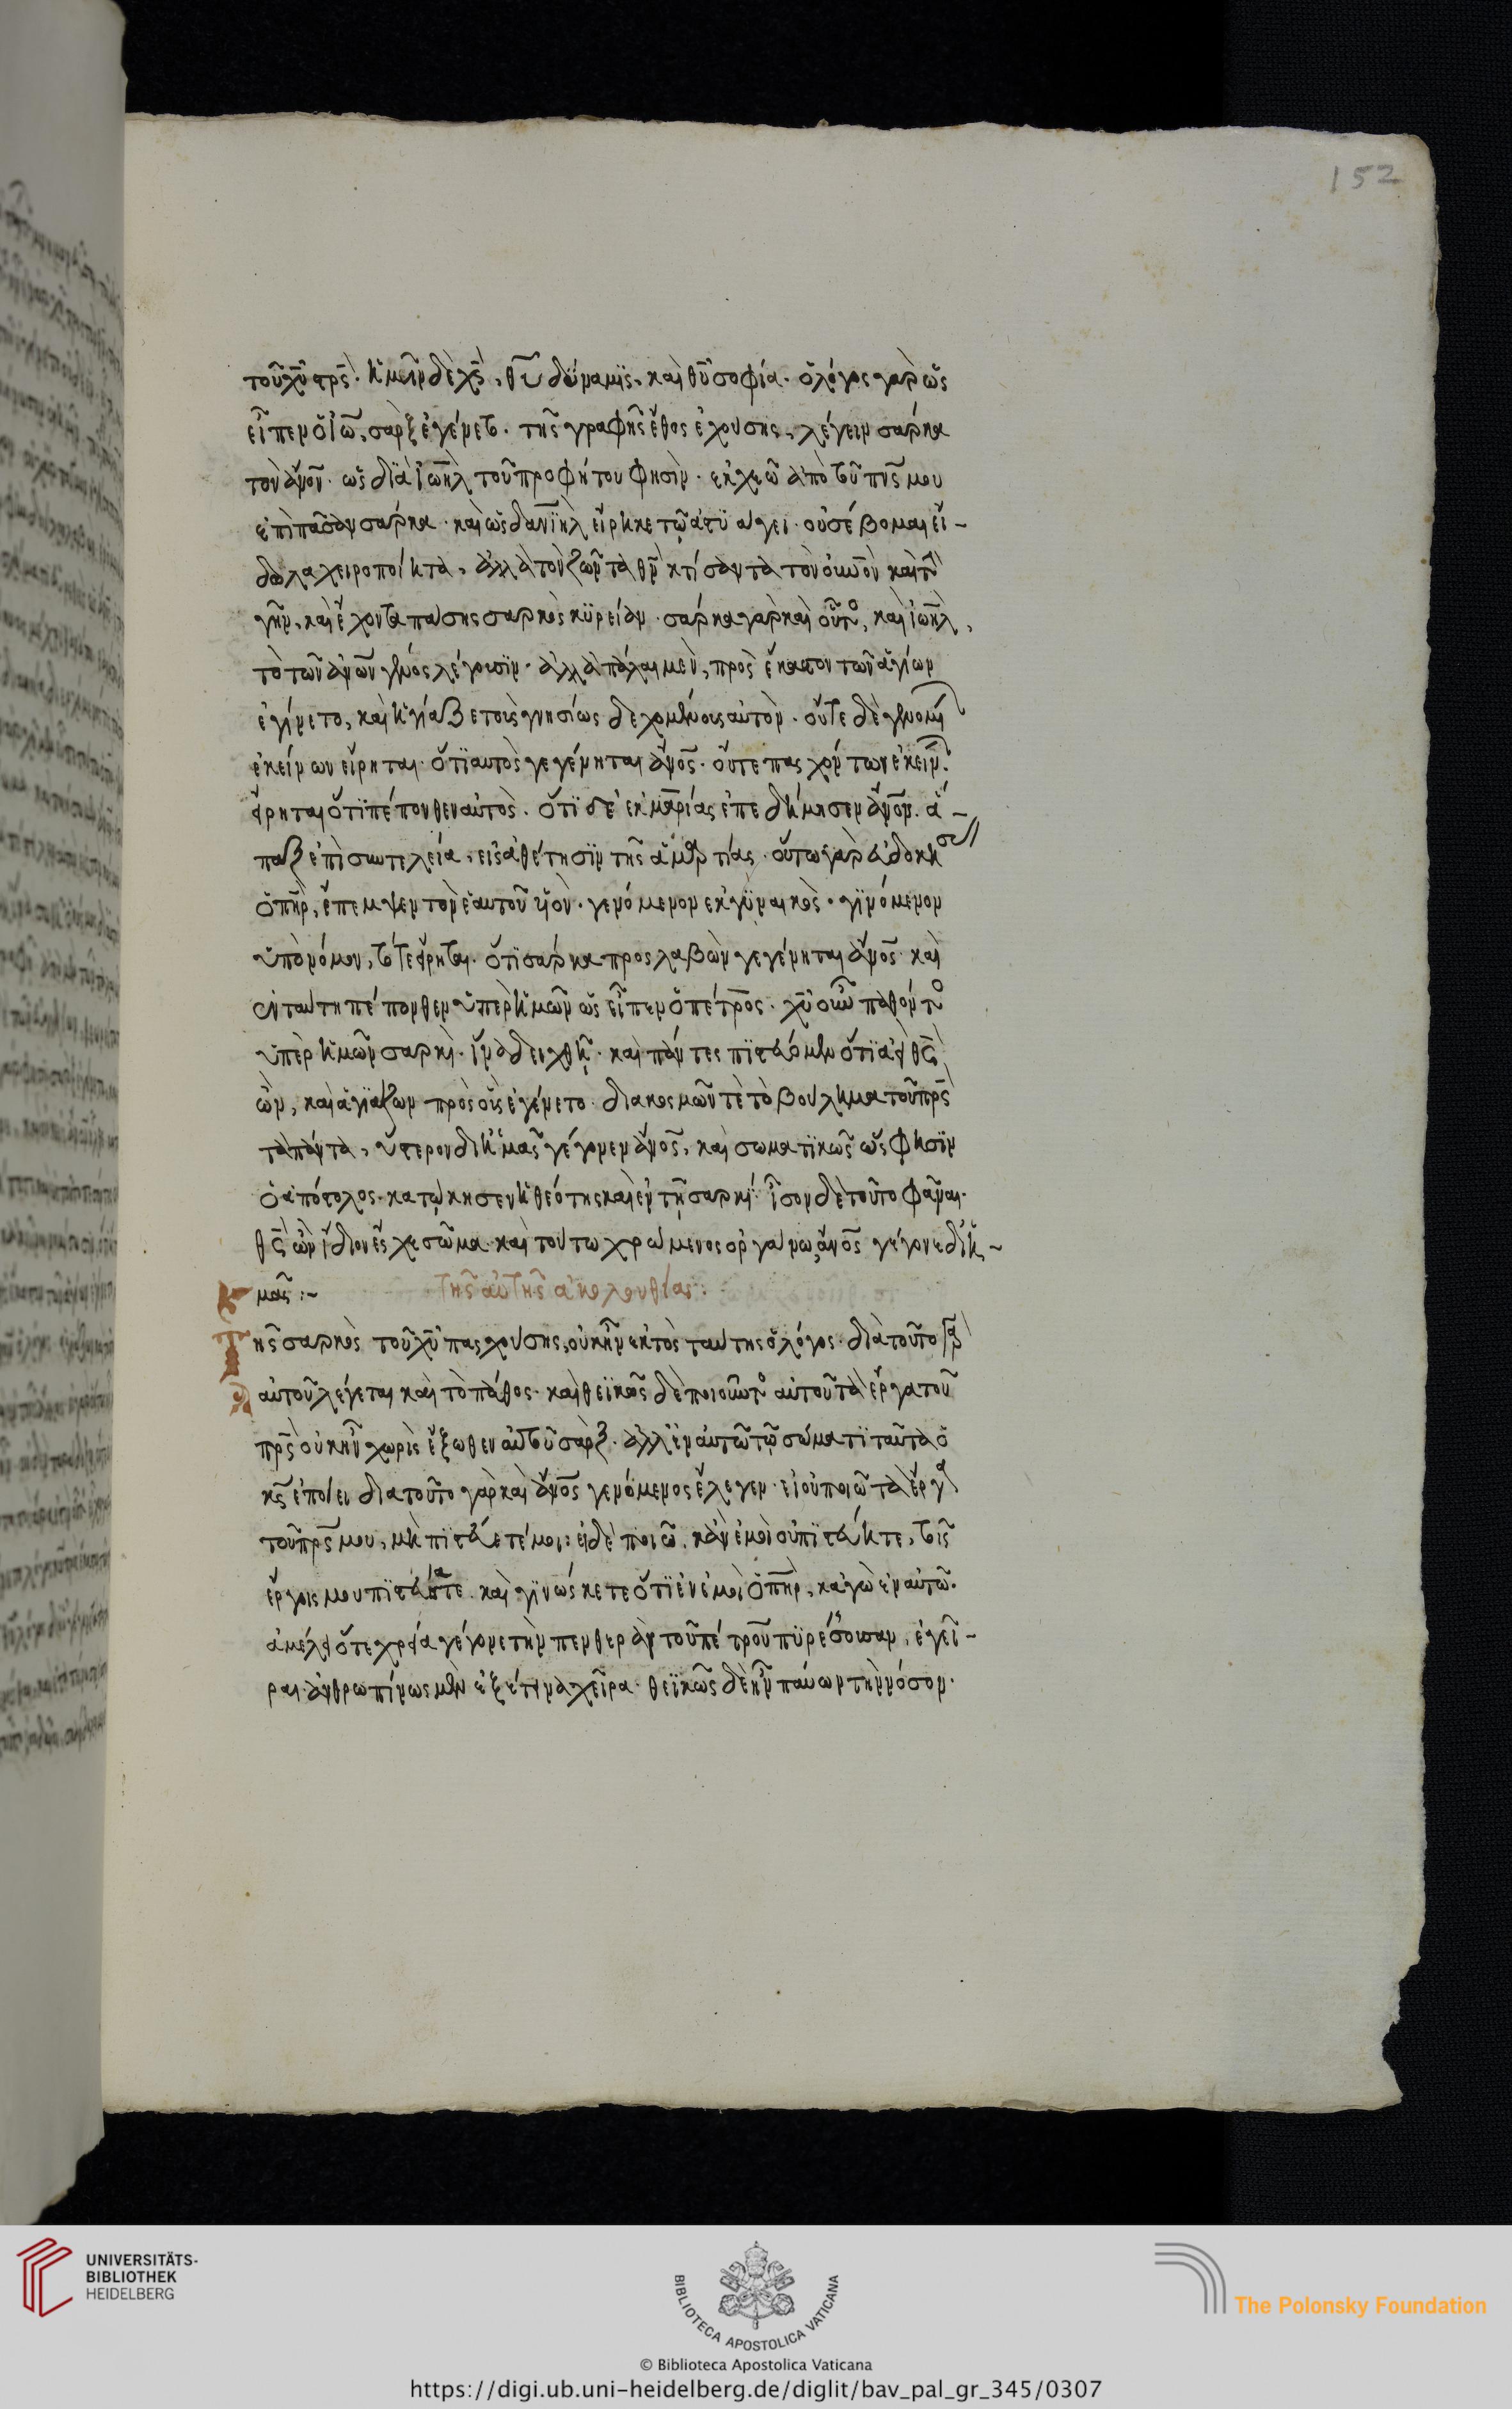 152
τοῦ χῦ στρς. ἡμῖν δὲ χς, θῦ δύναμϊς, καὶ θῦ σοφία. ὁ λόγος γὰρ ὡς
εἶπεν ὁ ἰω, σὰρξ ἐγένετο. τῆς γραφῆς ἔθος ἐχούσης, λέγειν σάρκα
τὸν ἄνον. ὡς διὰ ἰωὴλ τοῦ προφήτου φησὶν. ἐκχεῶ ἀπὸ τοῦ πνς μου
ἐπὶ πᾶσαν σάρκα. καὶ ὡς δανϊὴλ εἴρηκε τῷ ἀστϋάγει. οὐ σέβομαι εἴ-
δωλα χειροποίητα, ἀλλὰ τὸν ζῶντα θν κτίσαντα τὸν οὐνον καὶ τὴν
γῆν, καὶ ἔχοντα πάσης σαρκὸς κϋρείαν. σάρκα γὰρ καὶ οὗτος, καὶ ἰωὴλ,
τὸ τῶν ἀνων γένος λέγουσϊν. ἀλλὰ πάλαι μὲν, πρὸς ἕκαστον τῶν ἁγίων
ἐγίνετο, καὶ ἡγίαζε τοὺς γνησίως δεχομένους αὐτὸν. οὔτε δὲ γενομένων
ἐκείνων εἴρηται ὅτϊ αὐτὸς γεγένηται ἄνος. οὔτε πασχόντων ἐκείνων
εἴρηται ὅτϊ πέπονθεν αὐτὸς. ὅτϊ δὲ ἐκ μαρίας ἐπεδήμησεν ἄνον. ἅ-
παξ ἐπὶ συντελεία, εἰς ἀθέτησϊν τῆς ἁμαρτίας. οὕτω γὰρ εὐδοκήσας
ὁ πηρ, ἔπεμψεν τὸν ἑαυτοῦ ϋἱὸν. γενόμενον ἐκ γϋναικὸς. γϊνόμενον
ὑπὸ νόμον, τότε εἴρηται. ὅτϊ σάρκα προσλαβὼν γεγένηται ἄνος. καὶ
ἐν ταύτη πέπονθεν ὑπὲρ ἡμῶν ὡς εἶπεν ὁ πέτρος. χῦ οὖν παθόντος
ὑπὲρ ἡμῶν σαρκὶ. ἵνα δειχθῆ. καὶ πάντες πϊστεύωμεν ὅτϊ ἀεὶ θς
ὢν, καὶ ἁγϊάζων πρὸς οὓς ἐγένετο. διακοσμῶν τὲ τὸ βούλημα τοῦ πρς
τὰ πάντα, ὕστερον δι ἡμᾶς γέγονεν ἄνος, καὶ σωματϊκῶς ὥς φησϊν
ὁ ἀπόστολος. κατώκησεν ἡ θεότης καὶ ἐν τῆ σαρκί. ἴσον δὲ τοῦτο φᾶναι.
θς ὢν ἴδιον ἔσχε σῶμα. καὶ τούτω χρώμενος ὀργάνω, ἄνος γέγονε δι ἡ-
μᾶς :-
τῆς αὐτῆς ἀκολουθίας :
Τῆς σαρκὸς τοῦ χῦ πασχούσης, οὐκ ἦν ἐκτὸς ταύτης ὁ λόγος. διὰ τοῦτο γὰρ
αὐτοῦ λέγεται καὶ τὸ πάθος. καὶ θεϊκῶς δὲ ποιοῦντος αὐτοῦ τὰ ἔργα τοῦ
πρς οὐκ ἦν χωρὶς ἔξωθεν αὐτοῦ σὰρξ. ἀλλ' ἐν αὐτῶ τῷ σώματϊ ταῦτα ὁ
κς ἐποίει διατοῦτο γὰρ καὶ ἄνος γενόμενος ἔλεγεν. εἰ οὐ ποιῶ τὰ ἔργα
τοῦ πρς μου, μὴ πϊστεύετέ μοι: εἰ δὲ ποιῶ. κἂν ἐμοὶ οὐ πϊστεύητε, τοῖς
ἔργοις μου πϊστεύσατε. καὶ γϊνώσκετε ὅτϊ ἐν ἐμοὶ ὁ πηρ, καγὼ ἐν αὐτῶ.
ἀμέλει ὅτε χρεία γέγονε τὴν πενθερὰν τοῦ πέτρου πϋρέσσουσαν, ἐγεῖ-
ραι. ἀνθρωπίνως μὲν ἐξέτεινα χεῖρα. θεϊκῶς δὲ ἦν παύων τὴν νόσον.
UNIVERSITÄTS-
BIBLIOTHEK
HEIDELBERG
BIBLIOTECA APOSTOLICA VATICANA
The Polonsky Foundation
© Biblioteca Apostolica Vaticana
https://digi.ub.uni-heidelberg.de/diglit/bav_pal_gr_345/0307